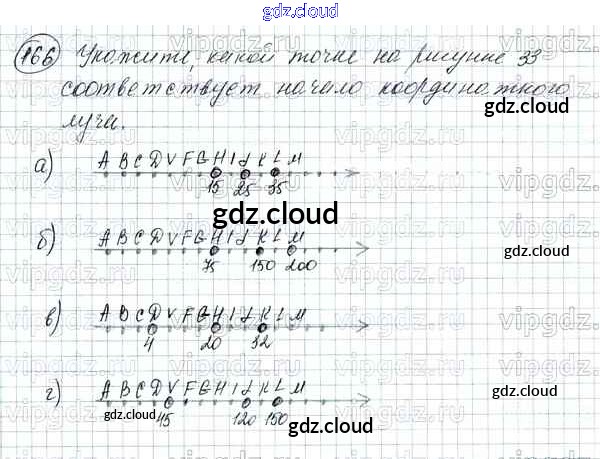 gdz.cloud
166 Укажите, какой точке на рисунке 33
соответствует начало координатного
луча.
gdz.cloud
а) A B C D V F G H I J K L M
15 25 35
gdz.cloud
б) A B C D V F G H I J K L M
75 150 200
gdz.cloud
в) A B C D V F G H I J K L M
4 20 32
г) A B C D V F G H I J K L M
45 120 150
gdz.cloud gdz.cloud
gdz.cloud